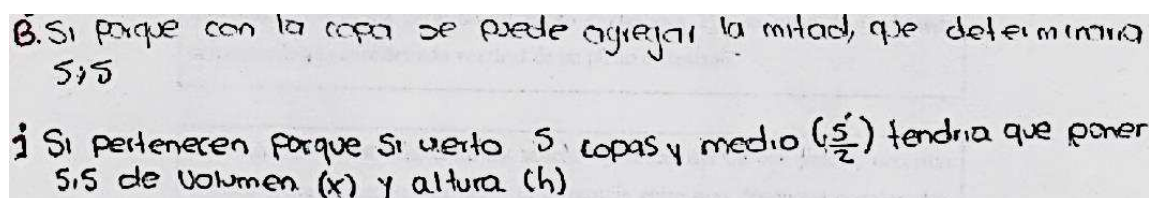 B. Si porque con la copa se puede agregar la mitad, que determinaria
5,5
j Si pertenecen porque si vierto 5 copas y medio (5/2) tendria que poner
5.5 de volumen (x) y altura (h)